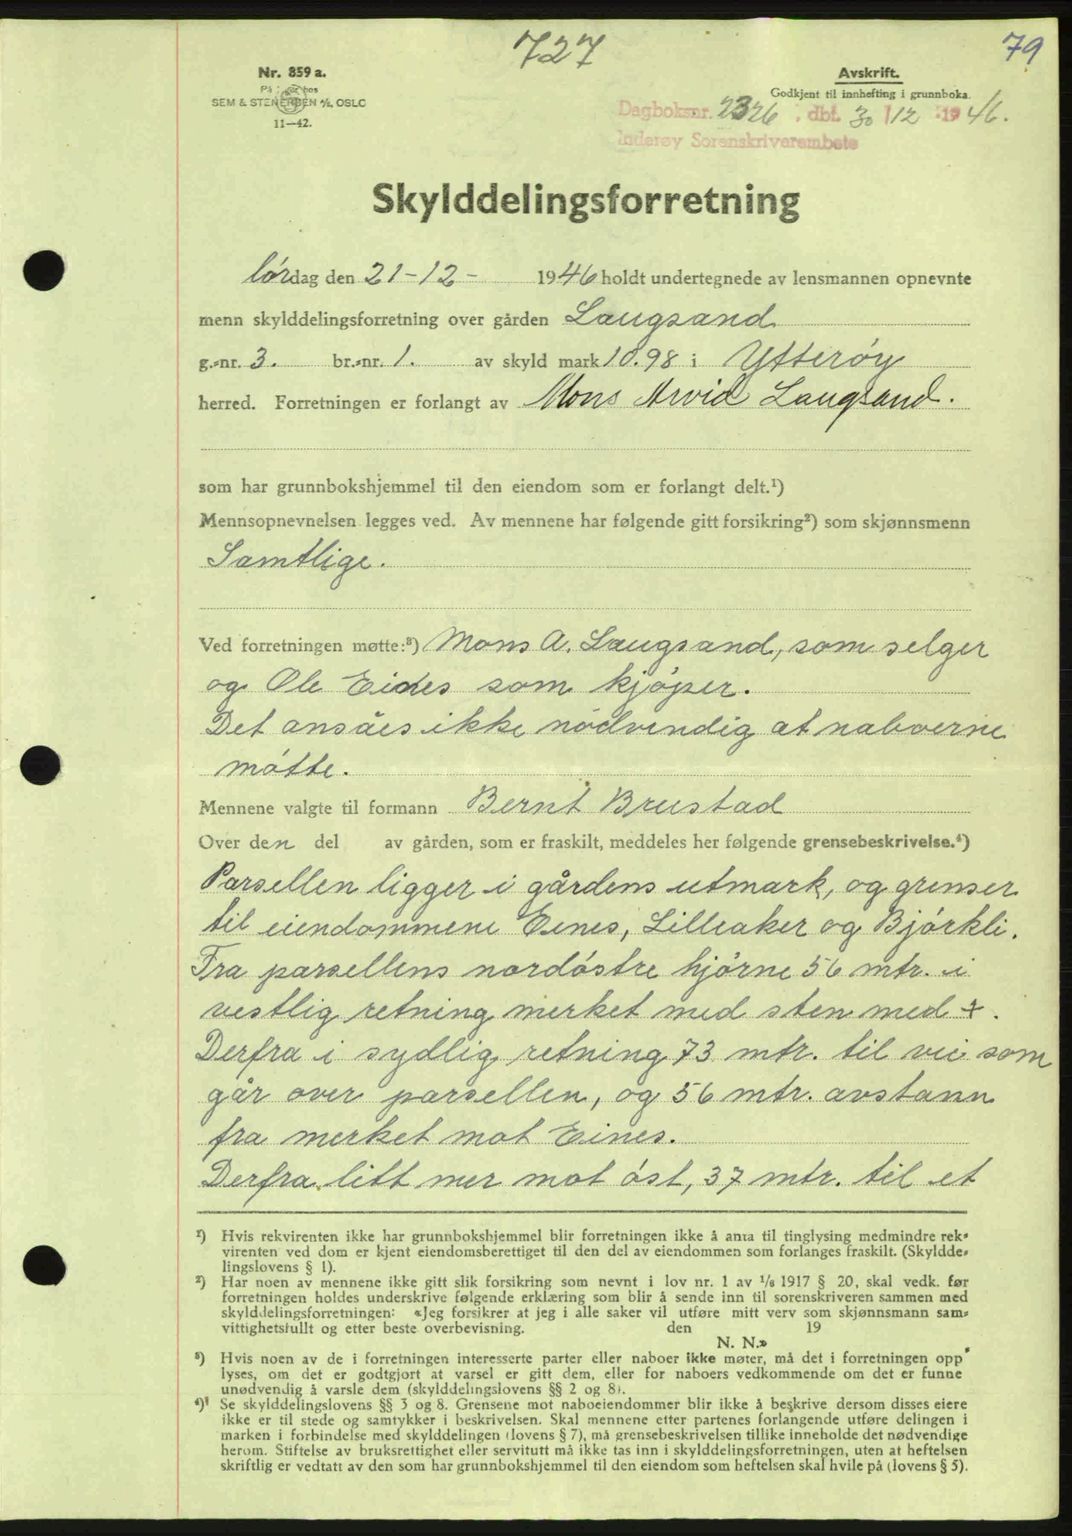 727
79
Nr. 859 a.
På lager hos
SEM & STENERSEN A/S, OSLO
11—42.
Avskrift.
Godkjent til innhefting i grunnboka.
Dagboksnr. 2326, dbf. 30/12 1946.
Inderøy Sorenskriverembete
Skylddelingsforretning
lørdag den 21-12- 1946 holdt undertegnede av lensmannen opnevnte
menn skylddelingsforretning over gården Laugsand
g.-nr. 3. br.-nr. 1. av skyld mark 10.98 i Ytterøy
herred. Forretningen er forlangt av Mons Arvid Laugsand.
som har grunnbokshjemmel til den eiendom som er forlangt delt.¹)
Mennsopnevnelsen legges ved. Av mennene har følgende gitt forsikring²) som skjønnsmenn
Samtlige.
Ved forretningen møtte:³) Mons A. Laugsand, som selger
og Ole Eines som kjøper.
Det ansåes ikke nødvendig at naboerne
møtte.
Mennene valgte til formann Bernt Brustad
Over den del av gården, som er fraskilt, meddeles her følgende grensebeskrivelse.⁴)
Parsellen ligger i gårdens utmark, og grenser
til eiendommene Eines, Lilleaker og Bjørkli.
Fra parsellens nordøstre hjørne 56 mtr. i
vestlig retning merket med sten med +.
Derfra i sydlig retning 73 mtr. til vei som
går over parsellen, og 56 mtr. avstann
fra merket mot Eines.
Derfra litt mer mot øst, 37 mtr. til et
¹) Hvis rekvirenten ikke har grunnbokshjemmel blir forretningen ikke å anta til tinglysing medmindre rek-
virenten ved dom er kjent eiendomsberettiget til den del av eiendommen som forlanges fraskilt. (Skyldde-
lingslovens § 1).
²) Har noen av mennene ikke gitt slik forsikring som nevnt i lov nr. 1 av 1/6 1917 § 20, skal vedk. før
forretningen holdes underskrive følgende erklæring som blir å sende inn til sorenskriveren sammen med
skylddelingsforretningen: «Jeg forsikrer at jeg i alle saker vil utføre mitt verv som skjønnsmann sam-
vittighetsfullt og etter beste overbevisning. den 19
N. N.»
³) Hvis noen av de i forretningen interesserte parter eller naboer ikke møter, må det i forretningen opp
lyses, om det er godtgjort at varsel er gitt dem, eller for naboers vedkommende om det er funne
unødvendig å varsle dem (skylddelingslovens §§ 2 og 8).
⁴) Se skylddelingslovens §§ 3 og 8. Grensene mot naboeiendommer blir ikke å beskrive dersom disses eiere
ikke er til stede og samtykker i beskrivelsen. Skal mennene etter partenes forlangende utføre delingen i
marken i forbindelse med skylddelingen (lovens § 7), må grensebeskrivelsen tillike inneholde det nødvendige
herom. Stiftelse av bruksrettighet eller servitutt må ikke tas inn i skylddelingsforretningen, uten at heftelsen
skriftlig er vedtatt av den som har grunnbokshjemmel til den eiendom som heftelsen skal hvile på (lovens § 5).